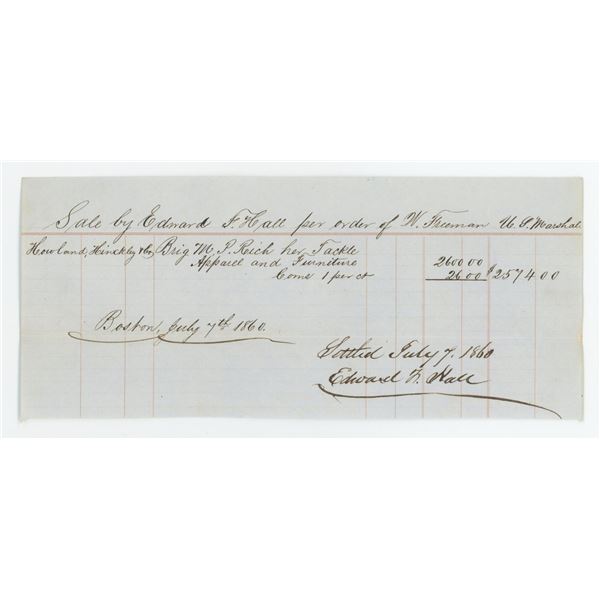 Sale by Edward F. Hall per order of W. Freeman U. S. Marshal
Howland, Hinckley & Co, Brig M. P. Rich her Tackle
Apparel and Furniture 2600 00
Coms 1 per ct 26 00 $2574 00
Boston, July 7th 1860
Settled July 7. 1860
Edward F. Hall